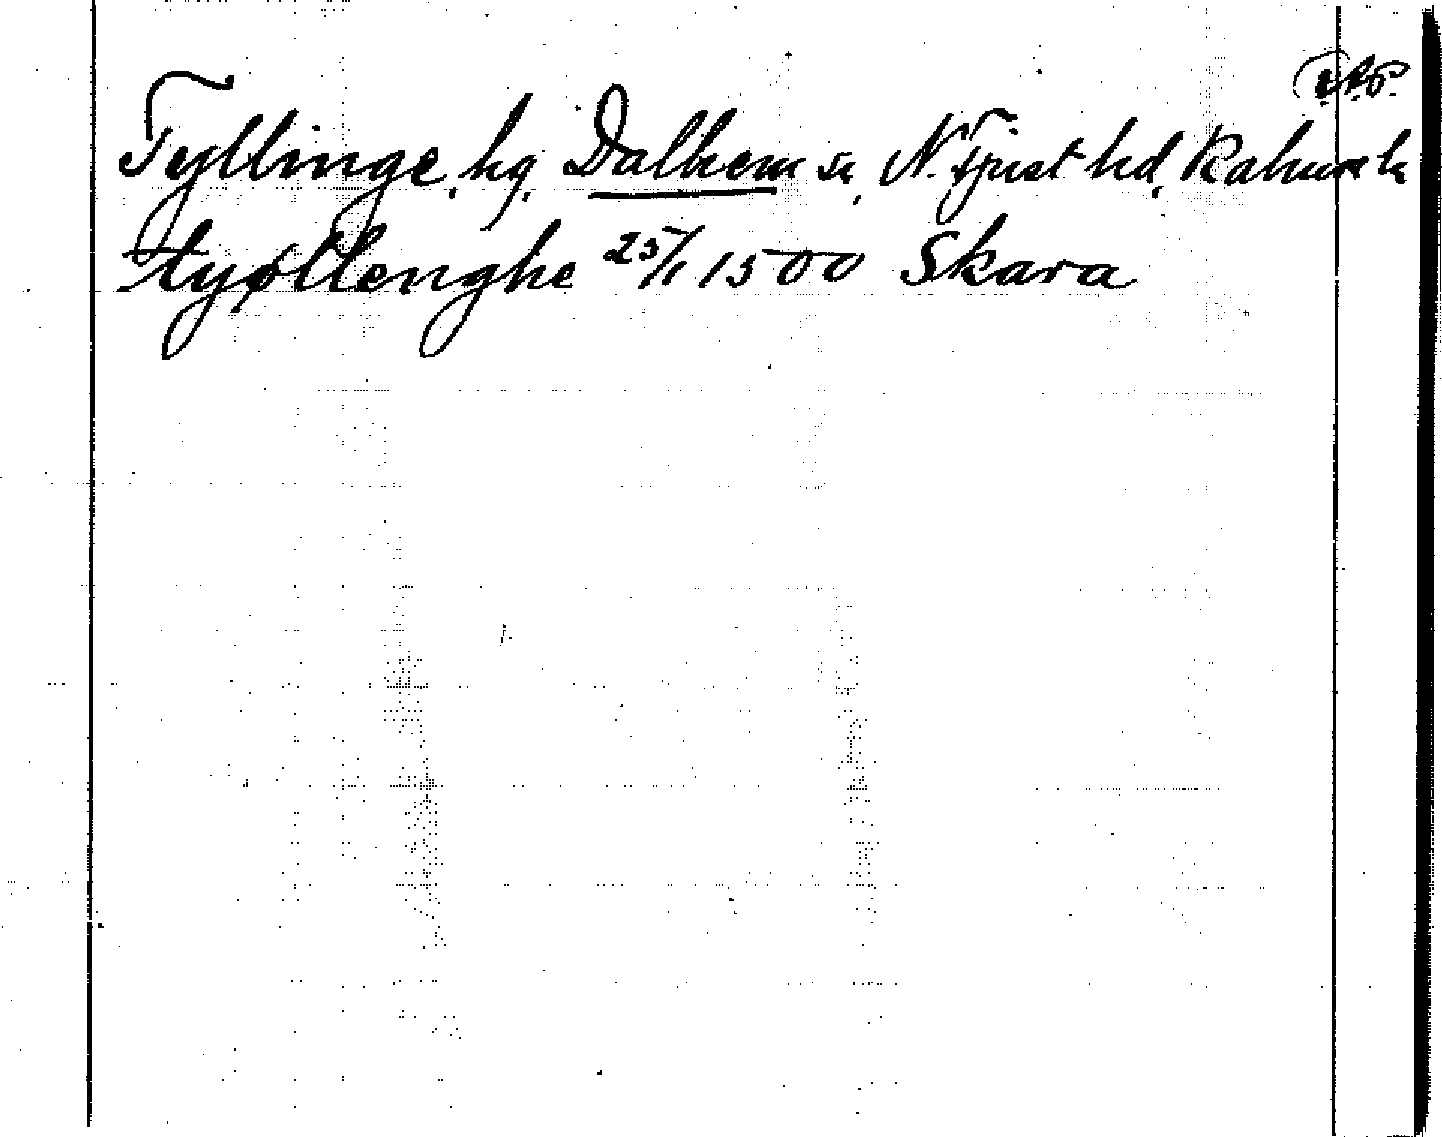 Tyllinge, hg, Dalhem sn, N. Tjust hd, Kalmar l.
tyøllenghe 25/1 1500 Skara